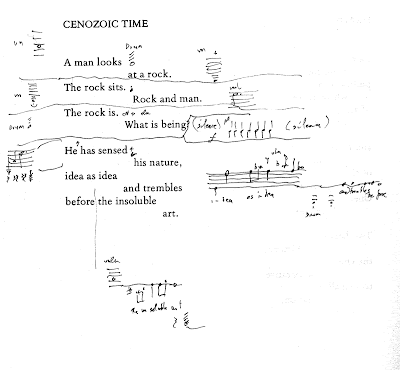 CENOZOIC TIME
Drum
A man looks
at a rock.
The rock sits.
Rock and man.
The rock is.
What is being? (silence) (silence)
Drum
He has sensed
his nature,
idea as idea
and trembles
before the insoluble
art.
i-dea as idea
the in soluble art